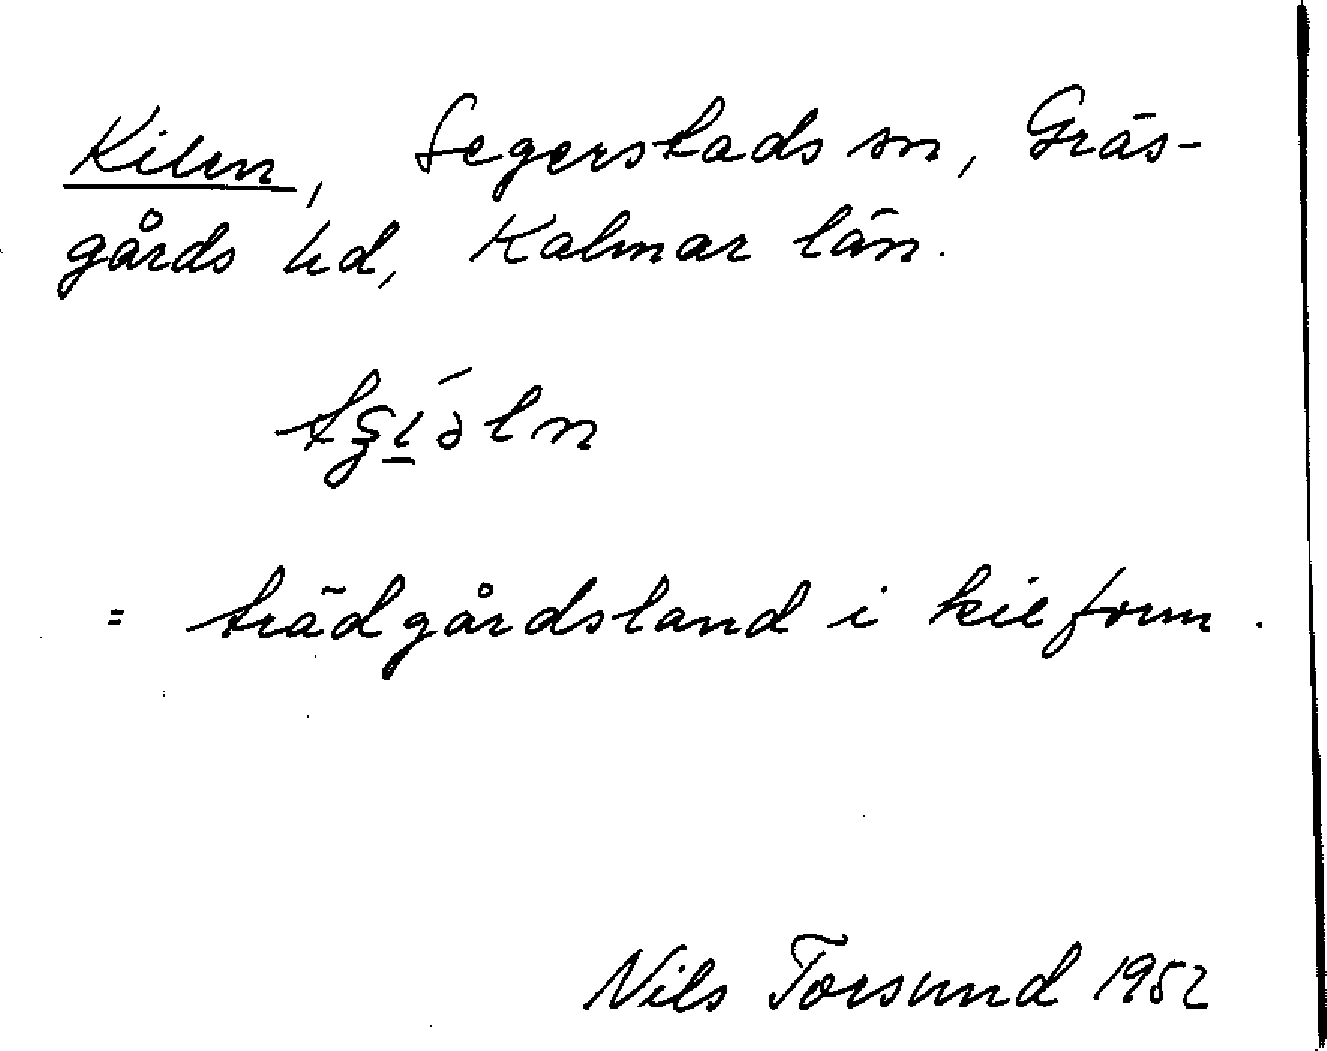 Kilen, Segerstads sn, Gräs-
gårds hd, Kalmar län.
= trädgårdsland i kilform.
Nils Torsund 1952